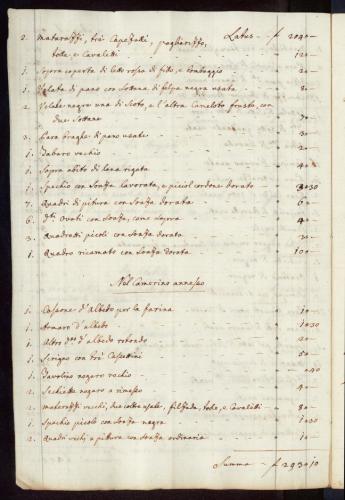 2. Mataraffi, trè Capezzalli, pagliariffo, Latus - f 2040 -
tolle, e Cavaletti - " 12 -
1. Sopra coperta di letto rossa di fillo, e bombaggio - " 2 -
1. Veslada di pano con Sottana di felpa negra usata - " 8 -
2. Veslate negre una di Scoto, e l'altra Cameloto fruste, con
due Sottane - " 7 -
2. Para braghe di pano usate - " 3 -
1. Tabaro vechio - " 2 -
1. Sopra abito di lana rigata - " 4 -
1. Spechio con Soaza lavorata, e picciol cordone dorato - " 8 30
7. Quadri di pitura con Soaza dorata - " 6 -
6. d.ti Ovati con Soaza, come Sopra - " 4 -
3. Quadretti picoli con Soaza dorata - " 3 -
1. Quadro ricamato con Soaza dorata - " 10 -
Nel Camerino annesso
1. Casone d'Albeo per la farina - " 1 -
1. Armaro d'albeo - " 1 30
1. Altro d.o d'albeo rotondo - " 2 -
1. Scrigno con trè Cassettini - " 5 -
1. Tavolino nogaro vechio - " - 40
2. Sechiette nogaro a rimesso - " 4 -
2. Mataraffi vecchi, due coltre usate, filzada, tole, e Cavaletti - " 8 -
1. Spechio picolo con Soaza negra - " 1 30
2. Quadri vechi a pittura con Soaza ordinaria - " 1 -
Summa - f 2930